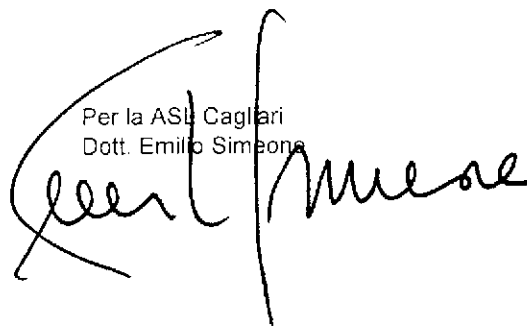 Per la ASL Cagliari
Dott. Emilio Simeone